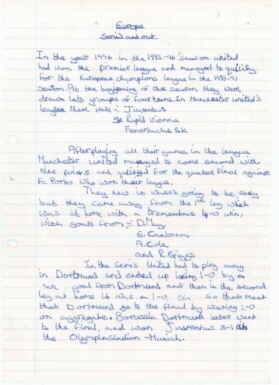 Europe
Semi's and out
In the year 1996 in the 1995-96 Season united
had won the premier league and managed to qualify
for the European champions league in the 1996-97
season. At the beginning of the season they were
drawn into groups of four teams. In Manchester united's
league there was:- Juventus
SK Rapid Vienna
Fenerbache S.K
After playing all their games in the league
Manchester united managed to come second with
nine points and qualified for the quarter final against
F.C Porto who won their league.
They knew it wasn't going to be easy
but they came away from the 1st leg which
was at home with a tremendous 4-0 win,
with goals from:- D. May
E. Cantona
A. Cole
and R. Giggs
In the semi's United had to play away
in Dortmund and ended up losing 1-0 by a
goal from Dortmund and then in the second
leg at home it was a 1-0 So that meant
that Dortmund go to the final by winning 2-0
on aggregate. Borussia Dortmund later went
to the final, and won Juventus 3-1 at
the Olympiastadion - Munich.